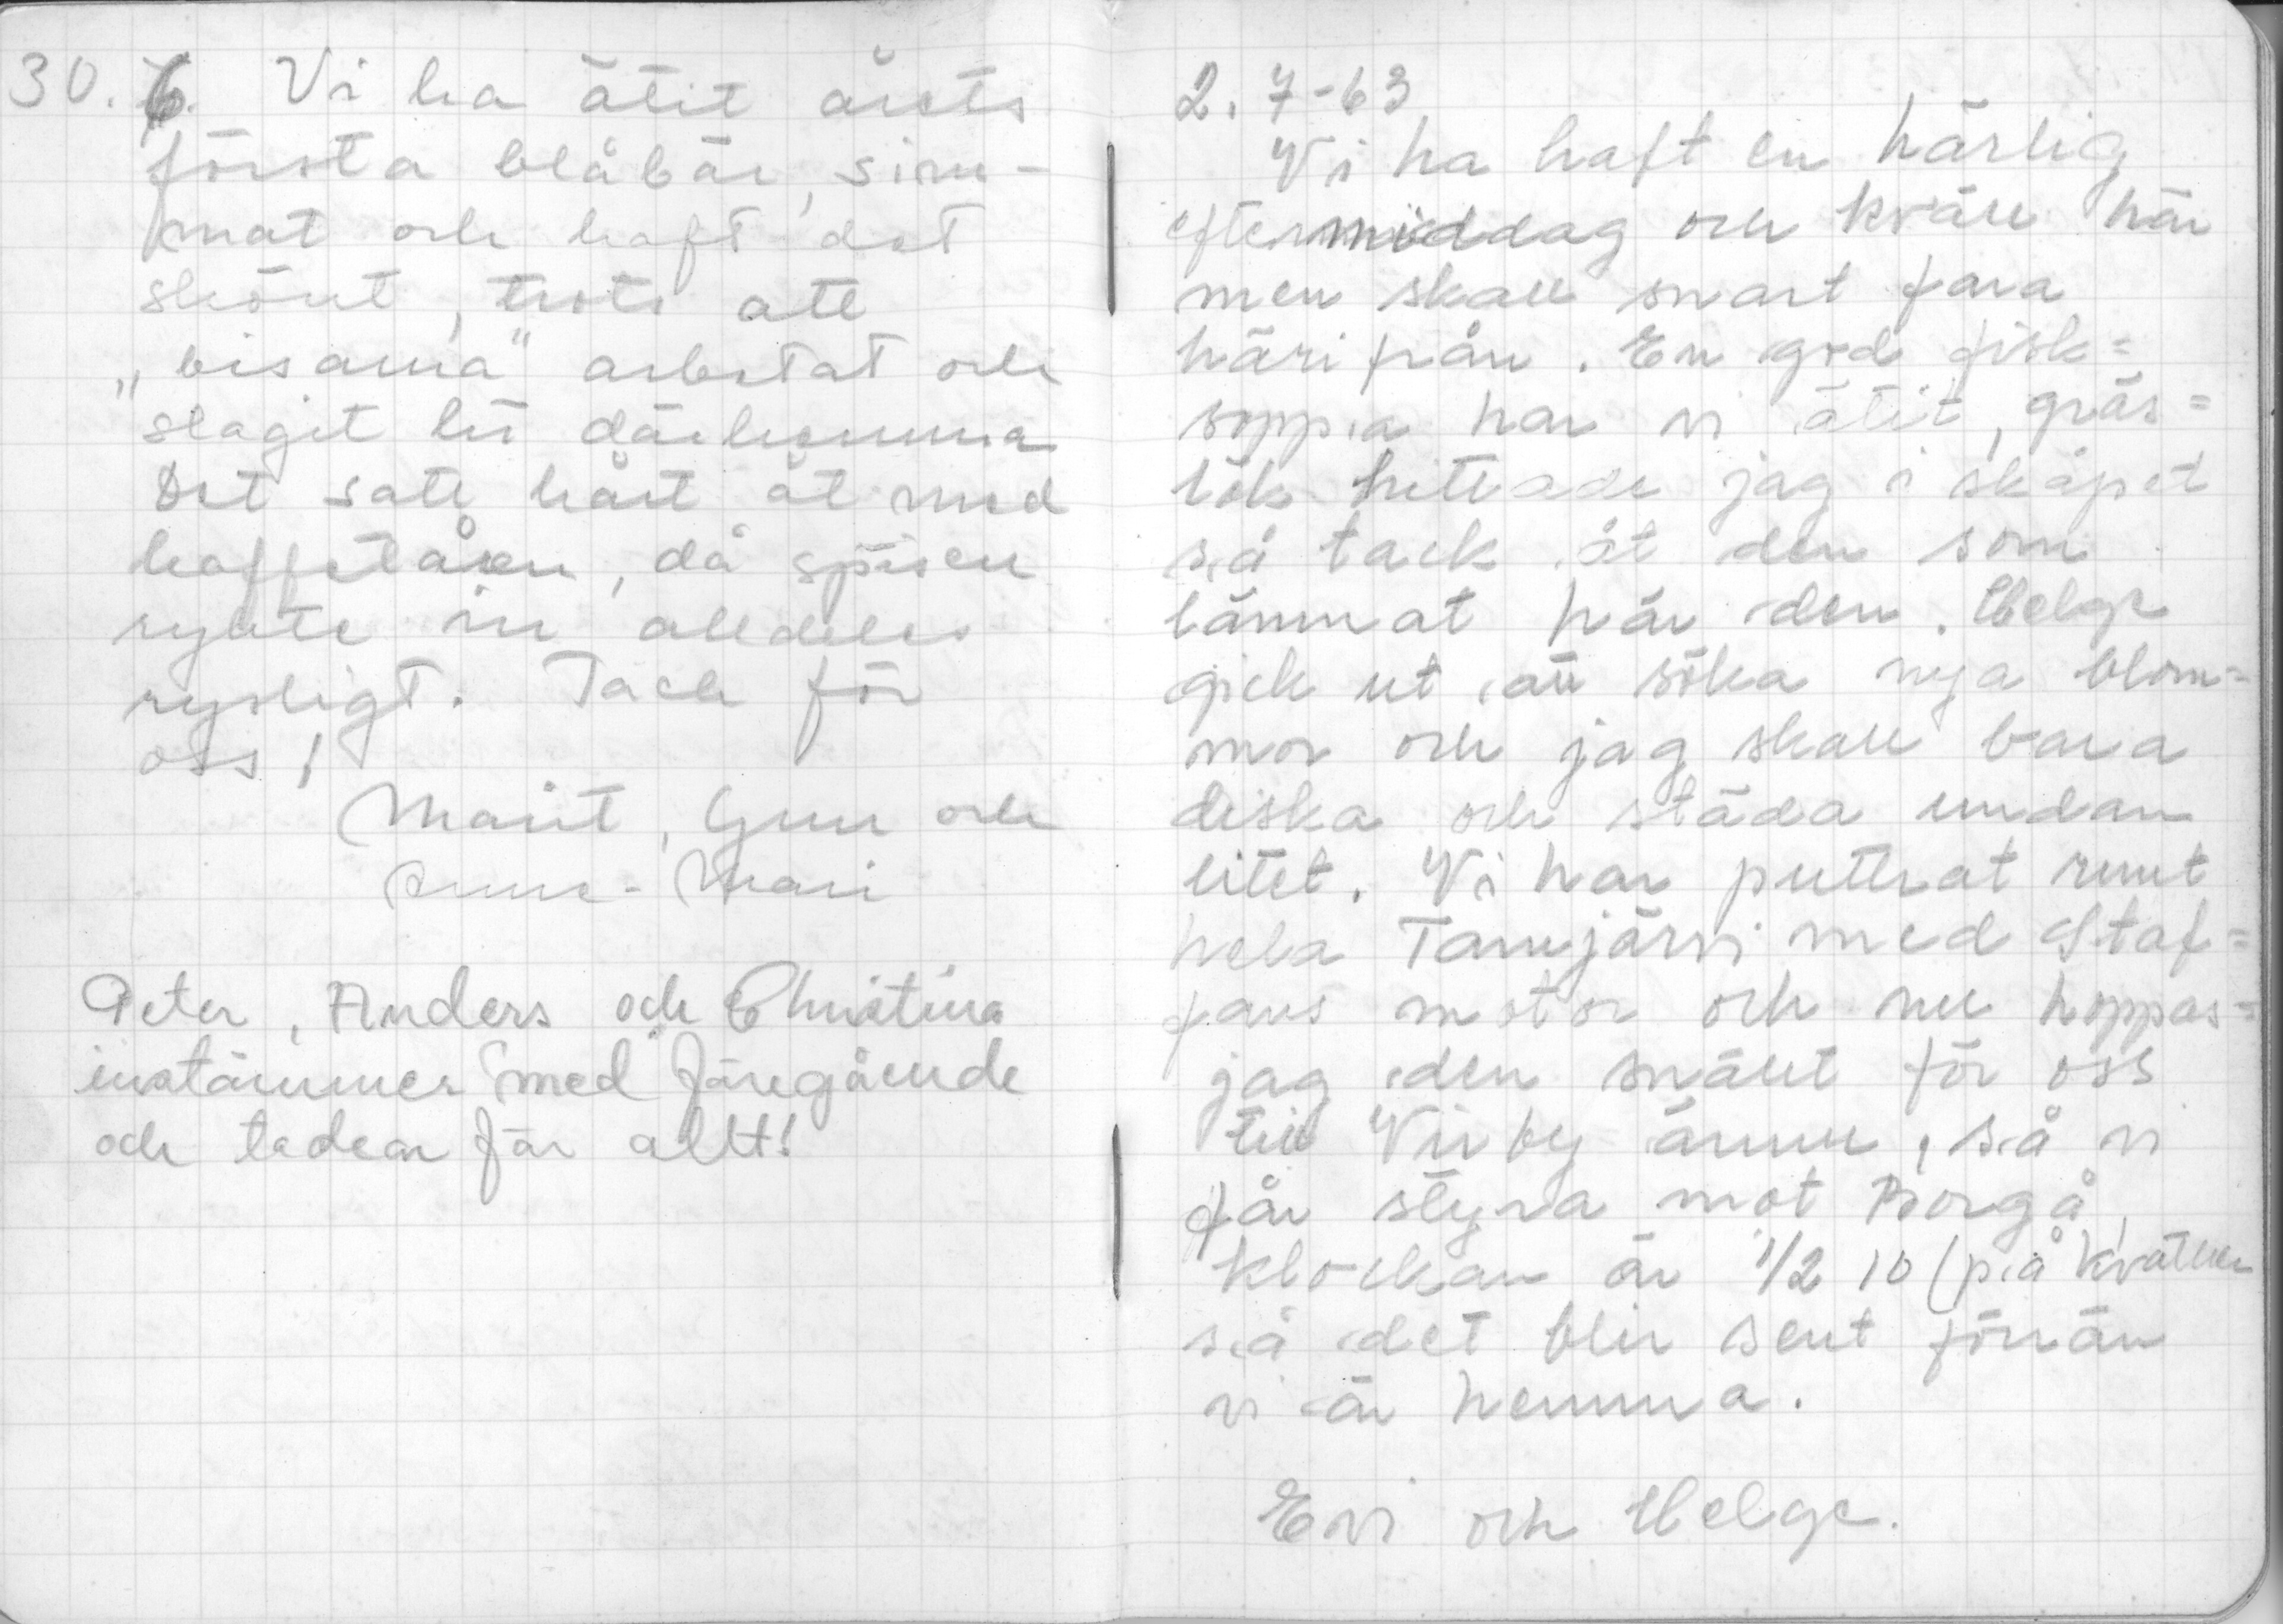 30. 6. Vi ha ätit årets
första blåbär, sim-
mat och haft det
skönt, trots att
„bisarna" arbetat och
slagit hö därhemma
Det satt hårt åt med
kaffetåren, då spisen
rykte in alldeles
rysligt. Tack för
oss!
Marit, Gun och
Anne-Mari
Peter, Anders och Christina
instämmer med föregående
och tackar för allt!
2. 7-63
Vi ha haft en härlig
eftermiddag och kväll här
men skall snart fara
härifrån. En god fisk=
soppa har vi ätit, gräs=
lök hittade jag i skåpet
så tack åt den som
lämnat här den. Helge
gick ut att söka nya blom=
mor och jag skall bara
diska och städa undan
litet. Vi har puttrat runt
hela Tammjärvi med Staf=
fans motor och nu hoppas=
jag den snällt för oss
till Virby ännu, så vi
får styra mot Borgå,
klockan är 1/2 10 (på kvällen
så det blir sent förrän
vi är hemma.
Evi och Helge.